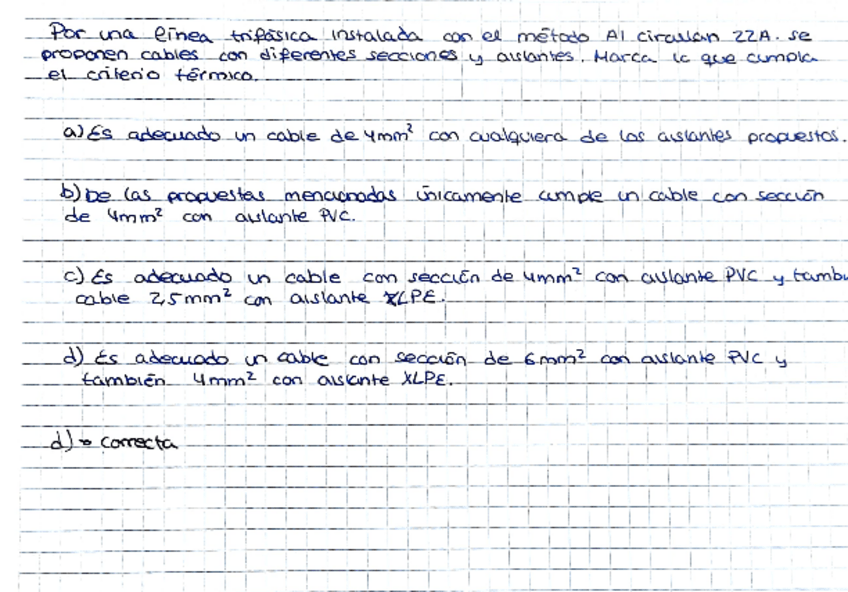 Por una línea trifásica instalada con el método A1 circulan 22A. se
proponen cables con diferentes secciones y aislantes. Marca la que cumpla
el criterio térmico.
a) Es adecuado un cable de 4mm² con cualquiera de los aislantes propuestos.
b) De las propuestas mencionadas únicamente cumple un cable con sección
de 4mm² con aislante PVC.
c) Es adecuado un cable con sección de 4mm² con aislante PVC y tambi
cable 2,5mm² con aislante XLPE.
d) Es adecuado un cable con sección de 6mm² con aislante PVC y
también 4mm² con aislante XLPE.
d) → correcta